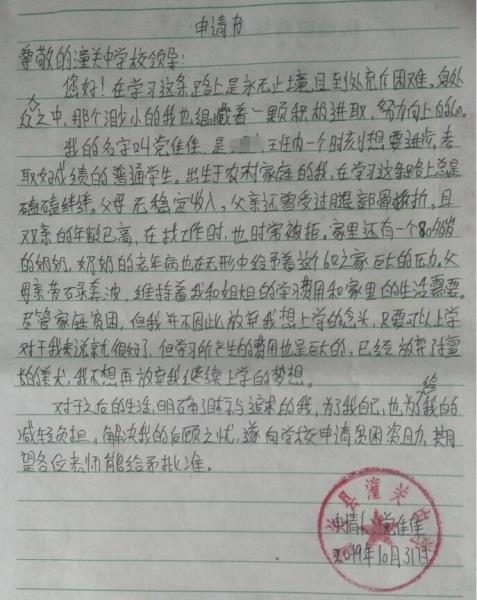 申请书
尊敬的潼关中学校领导:
您好!在学习这条路上是永无止境,且到处充斥困难。身处
众人之中,那个渺小的我也蕴藏着一颗积极进取,努力向上的心。
我的名字叫党佳佳,是 班内一个时刻想要进步,考
取好成绩的普通学生。出生于农村家庭的我,在学习这条路上总是
磕磕绊绊。父母无稳定收入,父亲还曾受过腿部骨折,且
双亲的年龄已高,在找工作时,也时常被拒。家里还有一个80多岁
的奶奶,奶奶的老年病也在无形中给予着这个6口之家巨大的压力。父
母亲劳碌奔波,维持着我和姐姐的学习费用和家里的生活需要。
尽管家庭贫困,但我并不因此放弃我想上学的念头,只要可以上学
对于我来说就很好了,但学习所产生的费用也是巨大的,已经放弃才艺
的美术,我不想再放弃我继续上学的梦想。
对于之后的生活,明确了目标与追求的我,为了我自己,也为给我的
减轻负担,解决我的后顾之忧,遂向学校申请贫困资助,期
望各位老师能给予批准。
申请人:党佳佳
2019年10月31日
县潼关中